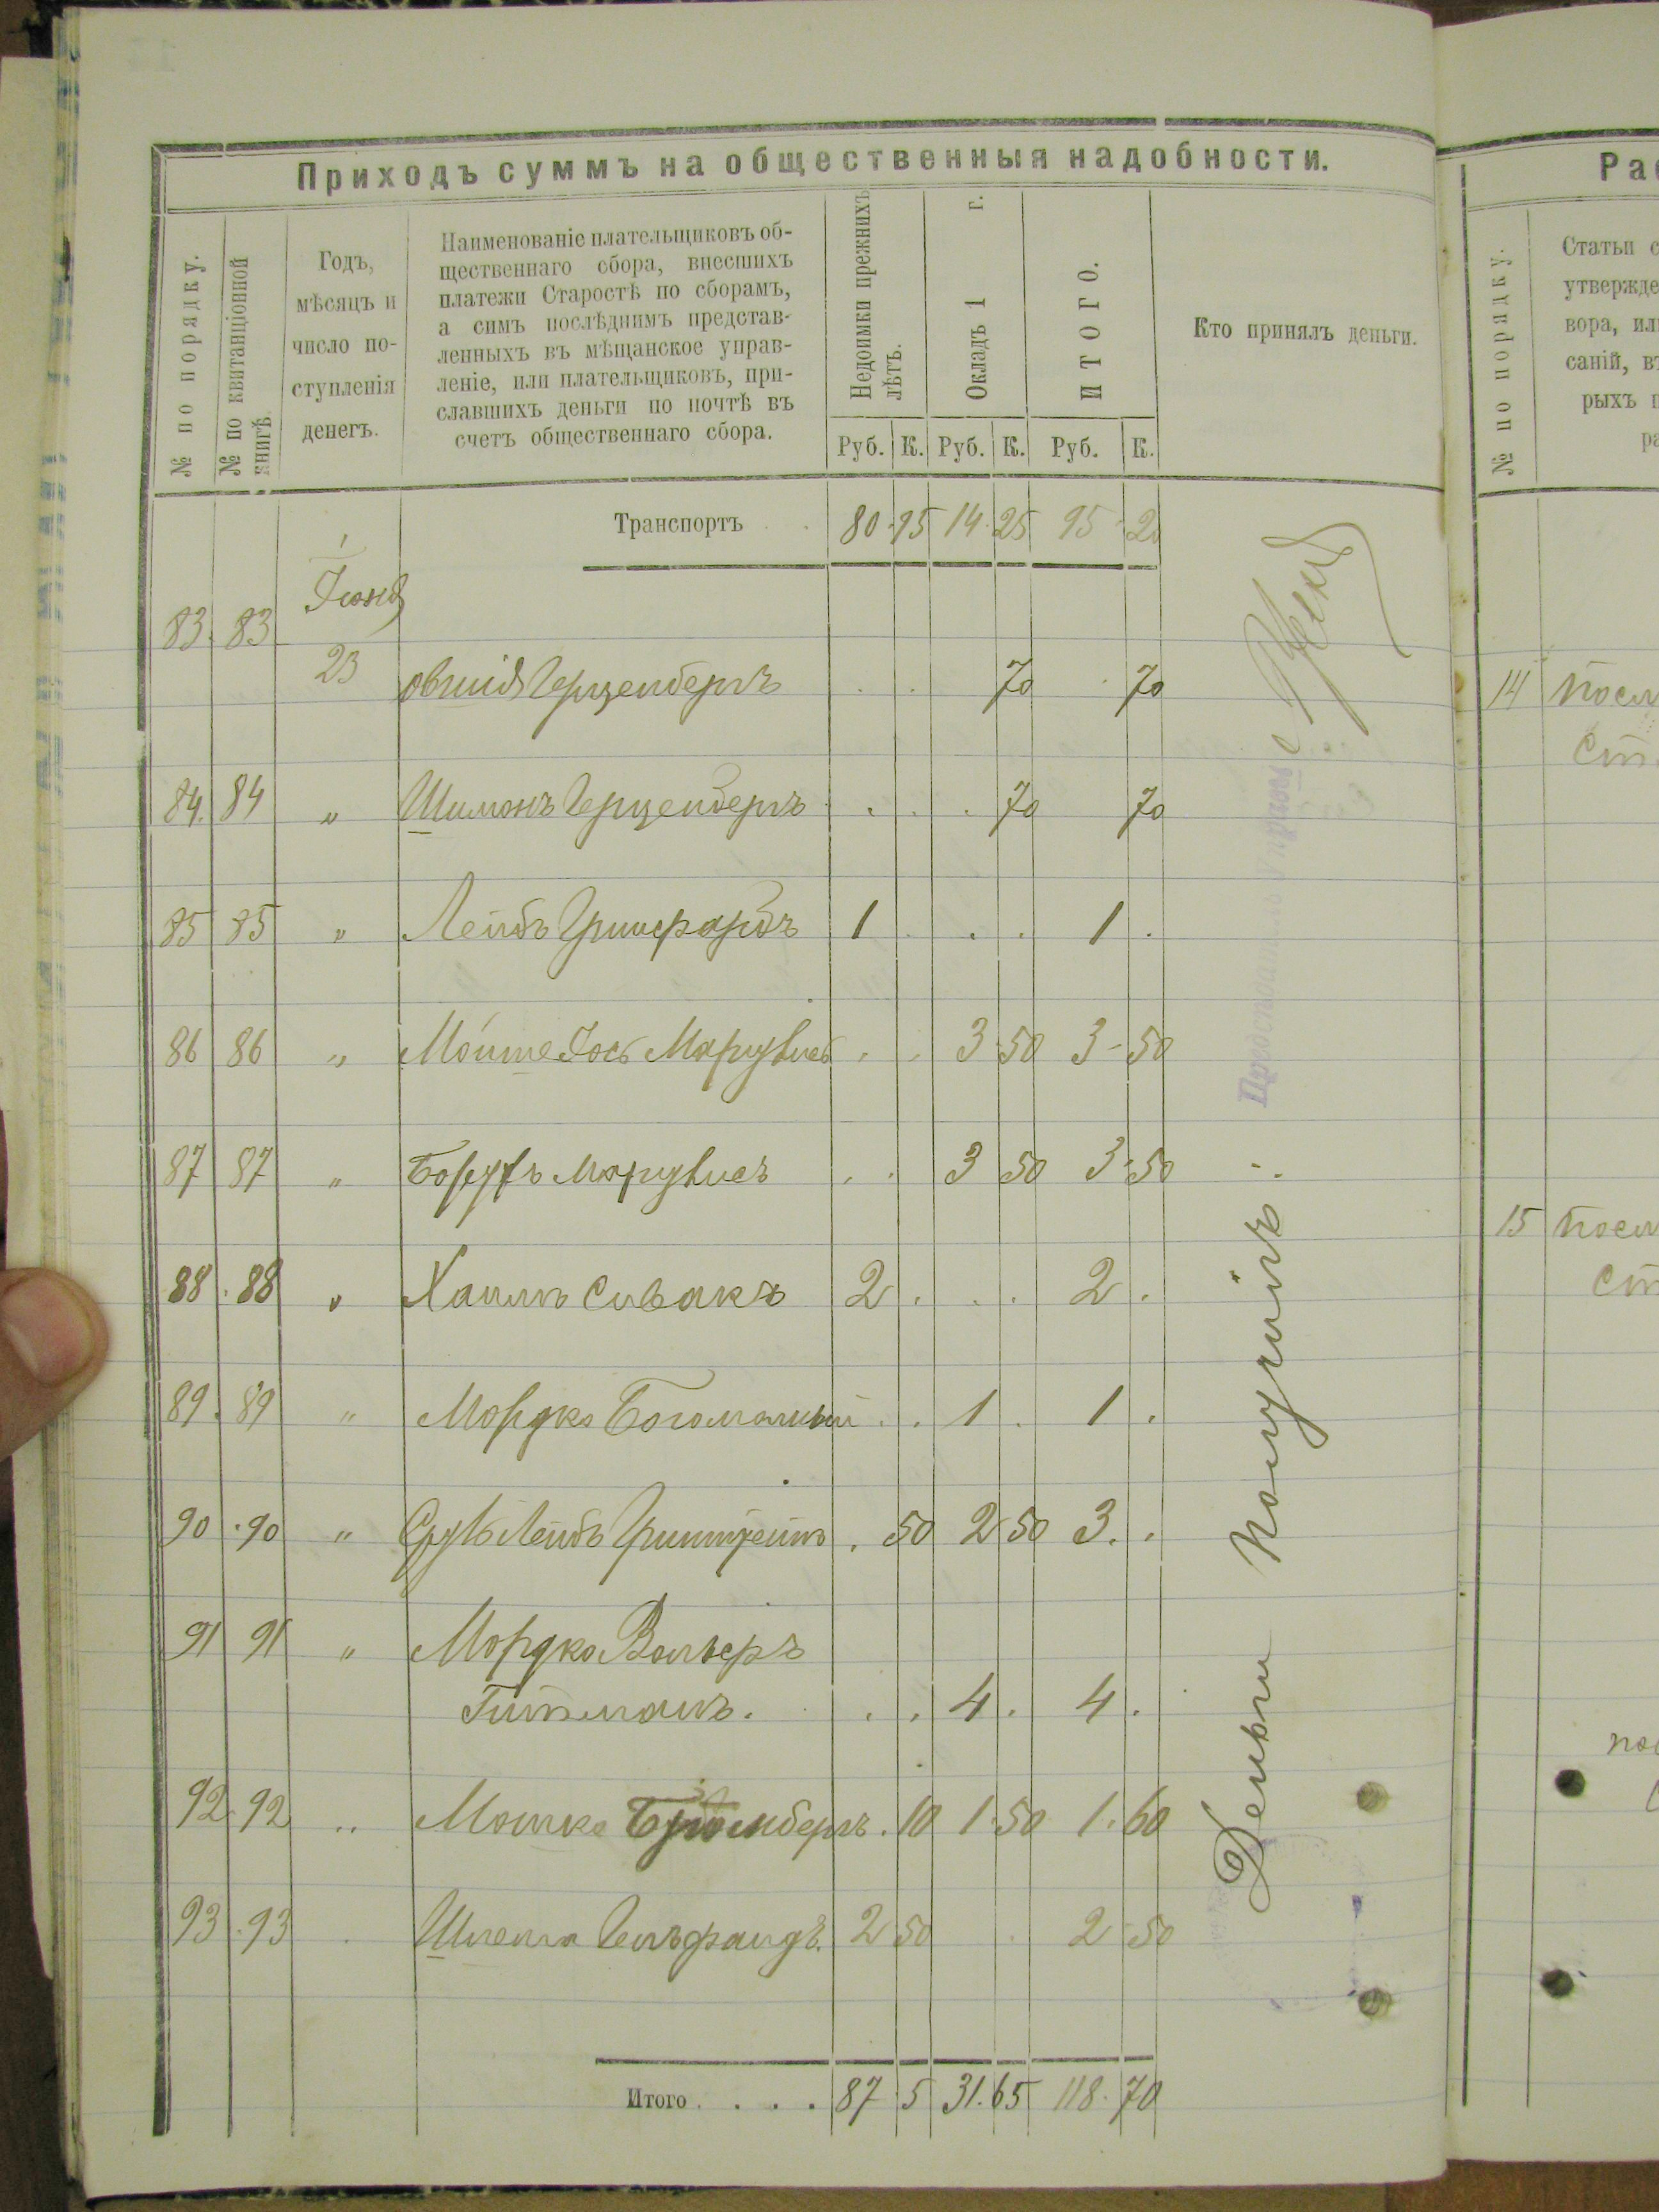 Приходъ суммъ на общественныя надобности.
№ по порядку.
№ по квитанціонной книгѣ.
Годъ,
мѣсяцъ и
число по-
ступленія
денегъ.
Наименованіе плательщиковъ об-
щественнаго сбора, внесшихъ
платежи Старостѣ по сборамъ,
а симъ послѣднимъ представ-
ленныхъ въ мѣщанское управ-
леніе, или плательщиковъ, при-
славшихъ деньги по почтѣ въ
счетъ общественнаго сбора.
Недоимки прежнихъ
лѣтъ.
Окладъ 1 г.
ИТОГО.
Кто принялъ деньги.
Руб. К. Руб. К. Руб. К.
Транспортъ 80 95 14 25 95 20
Іюня
83 83
23 Овшія Герценбергъ 70 70
84 84 " Шимонъ Герценбергъ 70 70
85 85 " Лейбъ Гринфарбъ 1 1
86 86 " Мойше Іось 3 50 3 50
87 87 " Борухъ 3 50 3 50
88 88 " Хаимъ Сивакъ 2 2
89 89 " Мордко Богомольный 1 1
90 90 " Сруль Лейбъ Гринштейнъ 50 2 50 3
91 91 " Мордко Вольеръ
Гительманъ. 4 4
92 92 " Мошко 10 1 50 1 60
93 93 Шлема Гельфандъ 2 50 2 50
Итого . . . . 87 5 31 65 118 70
Деньги получилъ:
Предсѣдатель Управы
№ по порядку.
Рас
Статьи с
утвержде
вора, ил
саній, въ
рыхъ п
ра
14 Посл
Ст
15 Посл
Ст